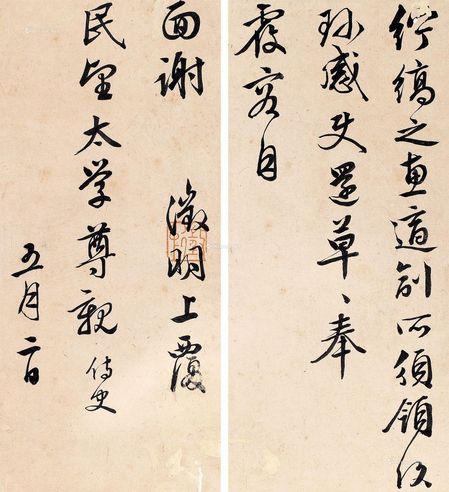 紵縞之惠適副所須領次
珎感使還草〻奉
覆容自
面謝 徵明上覆
民望太学尊親 侍史
五月二日